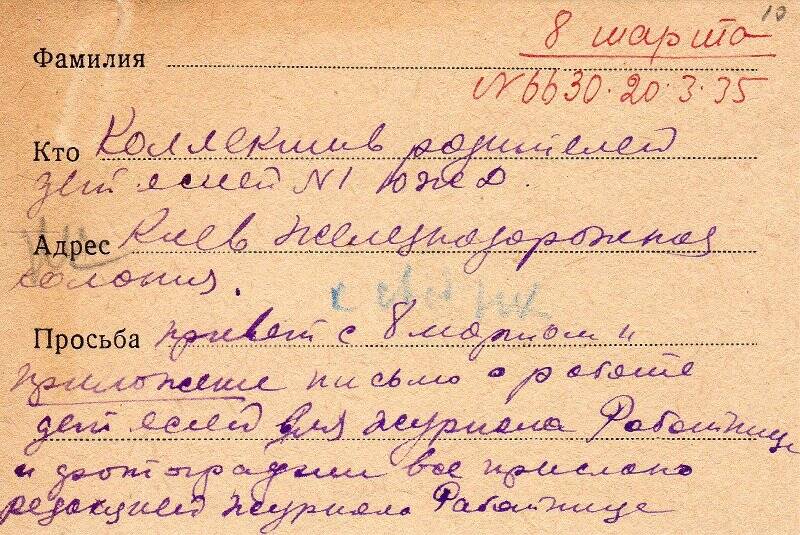 10
8 марта
N 6630. 20.3.35
Фамилия
Кто Коллектив родителей
дет яслей N1 Южд.
Адрес Киев Железнодорожная
колония.
Просьба привет с 8 мартом и
приложение письмо о работе
дет яслей для журнала Работнице
и фотографии все прислано
редакцией журнала Работнице